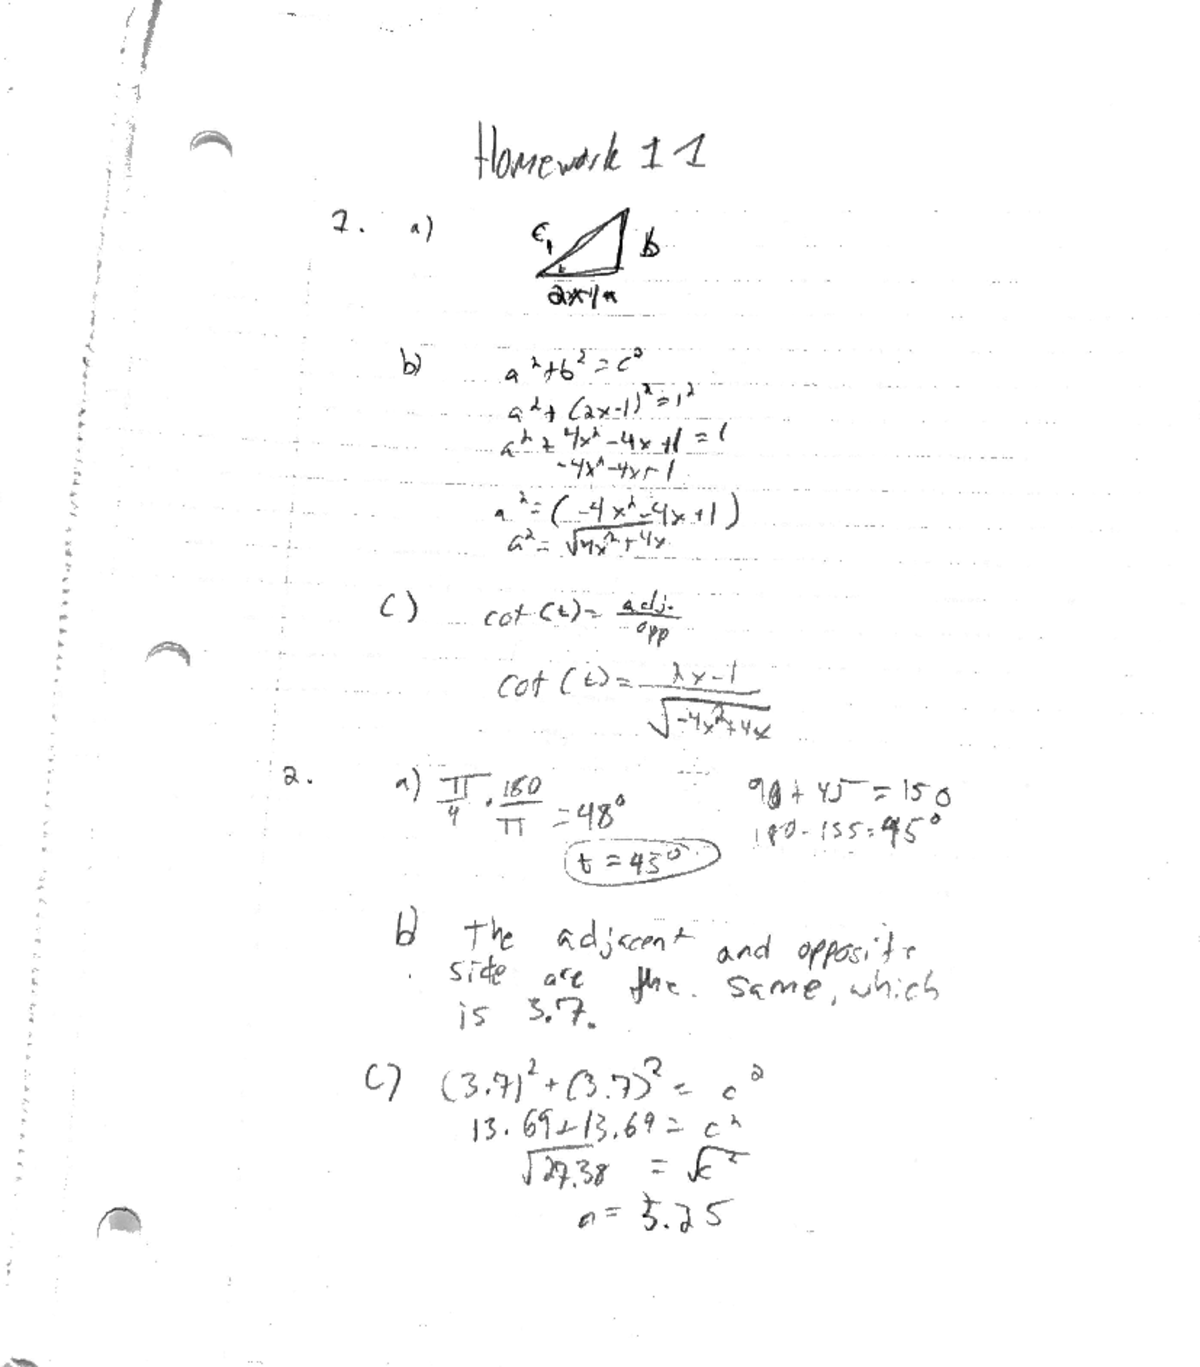 Homework 11
1. a)
b
2x-1/a
b)
a²+b²=c²
a²+(2x-1)²=1²
a²+4x²-4x+1=1
-4x²-4x+1
a²=(-4x²-4x+1)
a²=√4x²+4x
c) cot(t)= adj.
opp
cot(t)= 2x-1
√-4x²+4x
2. a) π/4 · 180/π =48° 90+45=150
t=45° 180-135=45°
b) The adjacent and opposite
side are the. same, which
is 3.7.
c) (3.7)²+(3.7)²= c²
13.69+13.69= c²
√27.38 = √c²
a= 5.25